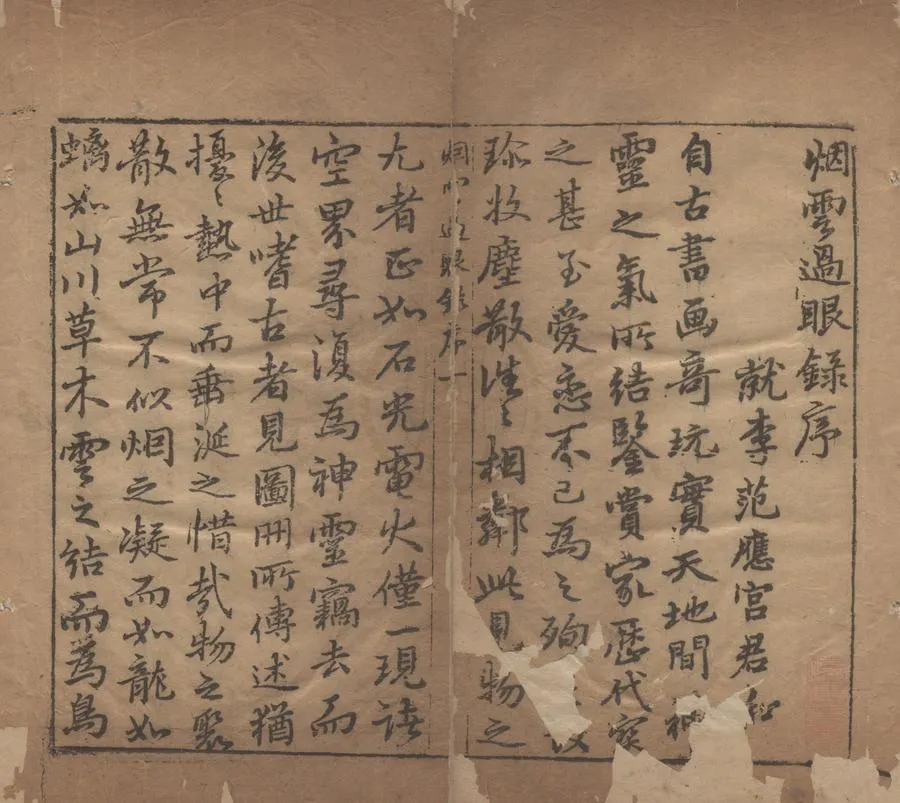 烟雲過眼錄序
就李范應宫君和
自古書画竒玩實天地間神
靈之氣所結鑒賞家歴代寳
之甚至愛恋不已為之殉
珍牧塵散徃〻相鄰此見物之
烟雲過眼錄序一
尢者正如石光電火僅一現
空累尋復為神靈竊去而
後世嗜古者見圖冊所傳述猶
擾〻熱中而垂涎之惜㦲物之聚
散無常不似烟之凝而如龍如
螭如山川草木雲之结而為鳥